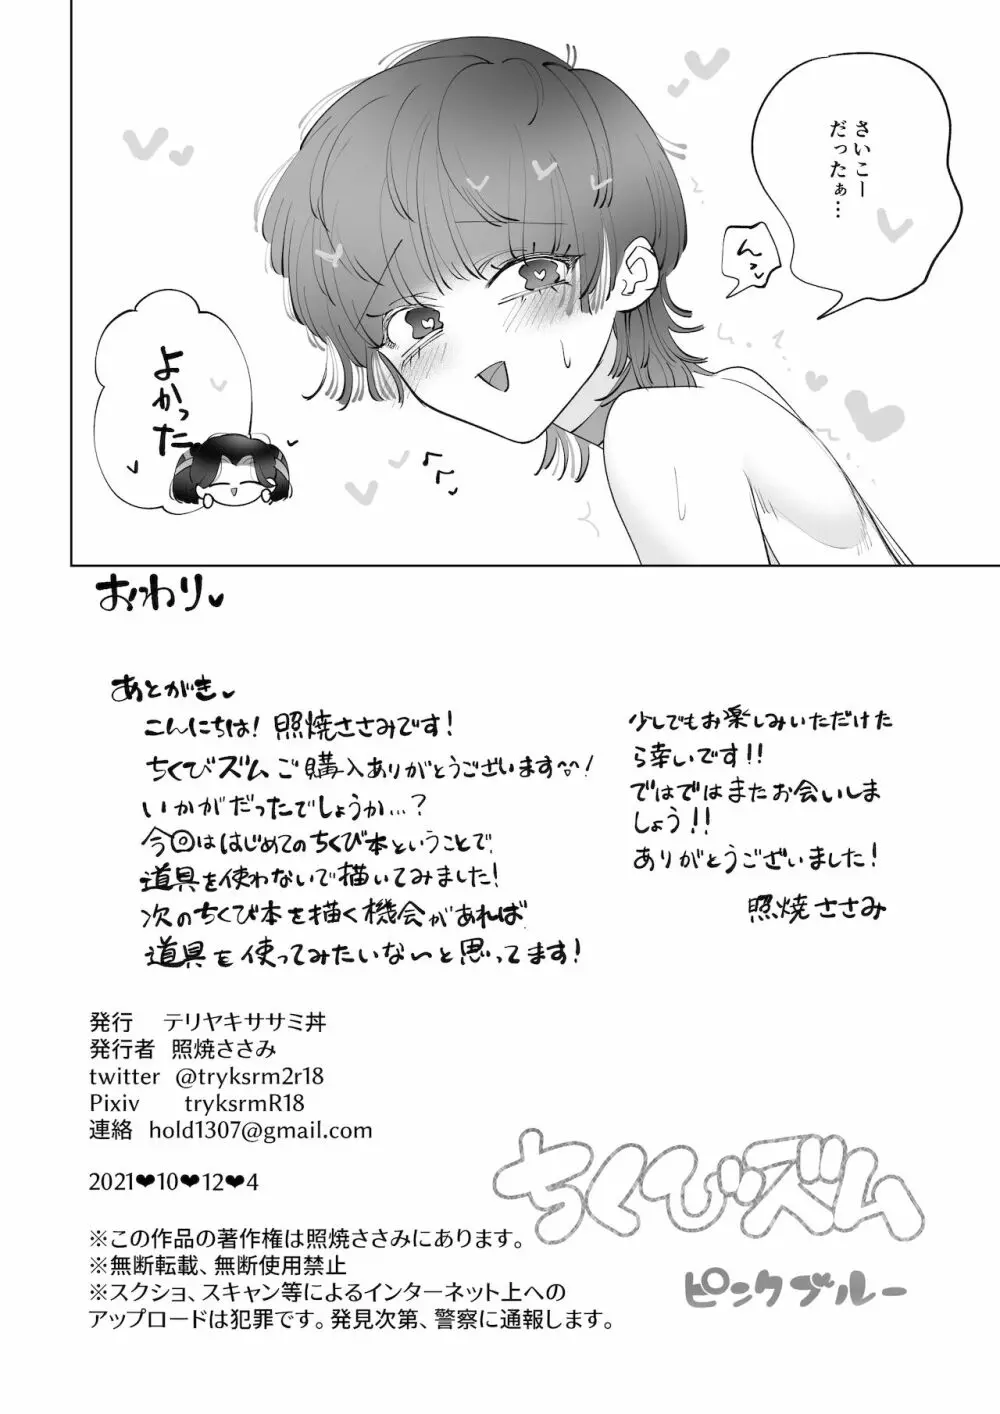 さいこー
だったぁ…
んっ
よかった
へへっ
おわり
あとがき
こんにちは！照焼ささみです！
ちくびズムご購入ありがとうございます！
いかがだったでしょうか…？
今回ははじめてのちくび本ということで、
道具を使わないで描いてみました！
次のちくび本を描く機会があれば
道具を使ってみたいな〜と思ってます！
少しでもお楽しみいただけた
ら幸いです!!
ではではまたお会いしま
しょう!!
ありがとうございました！
照焼ささみ
発行 テリヤキササミ丼
発行者 照焼ささみ
twitter @tryksrm2r18
Pixiv tryksrmR18
連絡 hold1307@gmail.com
2021❤10❤12❤4
※この作品の著作権は照焼ささみにあります。
※無断転載、無断使用禁止
※スクショ、スキャン等によるインターネット上への
アップロードは犯罪です。発見次第、警察に通報します。
ちくびズム
ピンクブルー